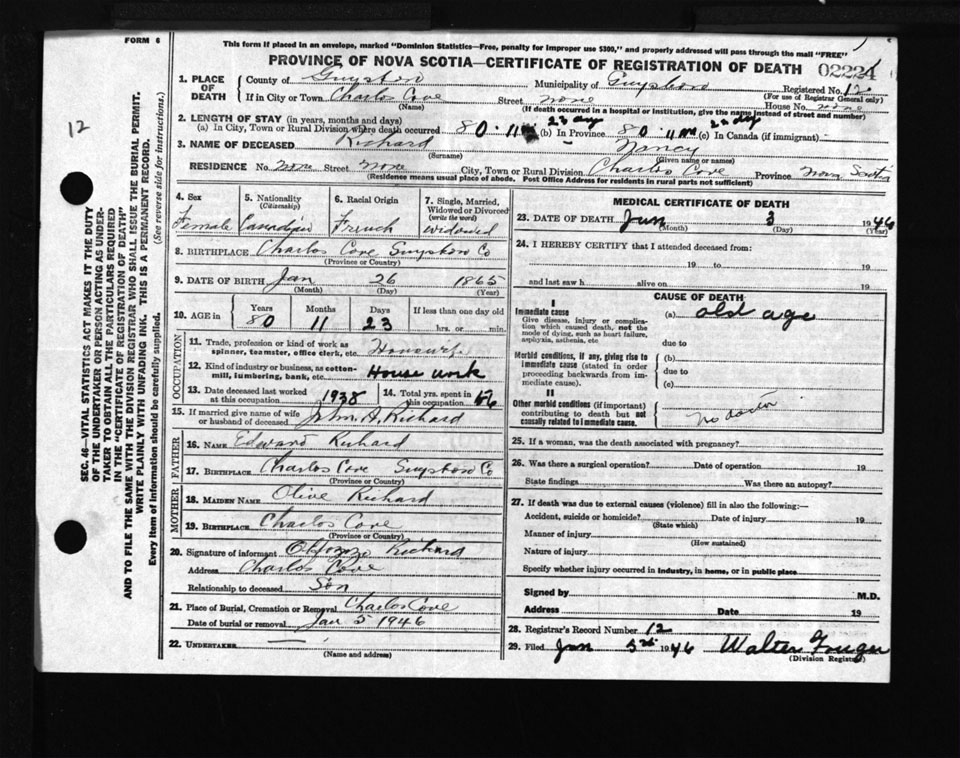 FORM 6
This form if placed in an envelope, marked "Dominion Statistics—Free, penalty for improper use $300," and properly addressed will pass through the mail "FREE"
PROVINCE OF NOVA SCOTIA—CERTIFICATE OF REGISTRATION OF DEATH 02224
1. PLACE OF DEATH County of Municipality of Registered No. 12
(For use of Registrar General only)
If in City or Town Charlos Cove Street none House No. none
(Name) (If death occurred in a hospital or institution, give the name instead of street and number)
2. LENGTH OF STAY (in years, months and days) 23 day
(a) In City, Town or Rural Division where death occurred 80 · 11 m (b) In Province 80 · 11 m (c) In Canada (if immigrant)
3. NAME OF DECEASED Richard Nancy
(Surname) (Given name or names)
RESIDENCE No. none Street none City, Town or Rural Division Charlos Cove Province Nova Scotia
(Residence means usual place of abode. Post Office Address for residents in rural parts not sufficient)
4. Sex 5. Nationality (Citizenship) 6. Racial Origin 7. Single, Married, Widowed or Divorced (write the word)
Female Canadian French widowed
8. BIRTHPLACE Charlos Cove Co
(Province or Country)
9. DATE OF BIRTH Jan 26 1865
(Month) (Day) (Year)
10. AGE in Years Months Days If less than one day old
80 11 23 hrs. or min.
OCCUPATION
11. Trade, profession or kind of work as spinner, teamster, office clerk, etc.
12. Kind of industry or business, as cotton-mill, lumbering, bank, etc. House work
13. Date deceased last worked at this occupation 1938 14. Total yrs. spent in this occupation
15. If married give name of wife or husband of deceased John A. Richard
FATHER
16. NAME Edward Richard
17. BIRTHPLACE Charlos Cove Co
(Province or Country)
MOTHER
18. MAIDEN NAME Olive Richard
19. BIRTHPLACE Charlos Cove
(Province or Country)
20. Signature of informant Richard
Address Charlos Cove
Relationship to deceased Son
21. Place of Burial, Cremation or Removal Charlos Cove
Date of burial or removal Jan 5 1946
22. UNDERTAKER
(Name and address)
MEDICAL CERTIFICATE OF DEATH
23. DATE OF DEATH Jan 3 1946
(Month) (Day) (Year)
24. I HEREBY CERTIFY that I attended deceased from:
19 to 19
and last saw h alive on 19
CAUSE OF DEATH
I
Immediate cause (a) old age
Give disease, injury or complication which caused death, not the mode of dying, such as heart failure, asphyxia, asthenia, etc
due to
Morbid conditions, if any, giving rise to immediate cause (stated in order proceeding backwards from immediate cause).
(b)
due to
(c)
II
Other morbid conditions (if important) contributing to death but not causally related to immediate cause.
no doctor
25. If a woman, was the death associated with pregnancy?
26. Was there a surgical operation? Date of operation 19
State findings Was there an autopsy?
27. If death was due to external causes (violence) fill in also the following:—
Accident, suicide or homicide? Date of injury 19
(State which)
Manner of injury
(How sustained)
Nature of injury
Specify whether injury occurred in industry, in home, or in public place
Signed by M.D.
Address Date 19
28. Registrar's Record Number 12
29. Filed Jan 1946 Walter
(Division Registrar)
12
SEC. 46—VITAL STATISTICS ACT MAKES IT THE DUTY
OF THE UNDERTAKER OR PERSON ACTING AS UNDER-
TAKER TO OBTAIN ALL THE PARTICULARS REQUIRED
IN THE "CERTIFICATE OF REGISTRATION OF DEATH"
AND TO FILE THE SAME WITH THE DIVISION REGISTRAR WHO SHALL ISSUE THE BURIAL PERMIT.
WRITE PLAINLY WITH UNFADING INK. THIS IS A PERMANENT RECORD.
Every item of information should be carefully supplied. (See reverse side for instructions.)